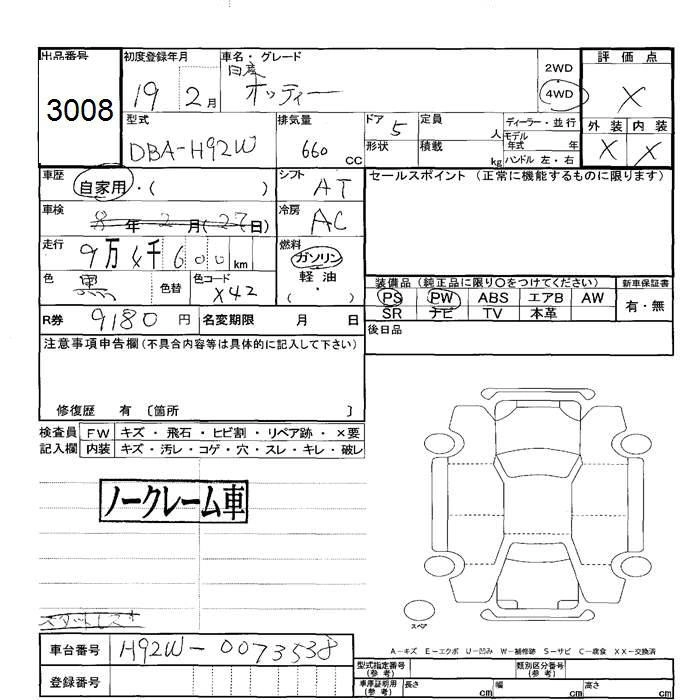 出品番号 初度登録年月 車名・グレード 評価点
3008 19 2月 日産 オッティー 2WD 4WD X
型式 排気量 ドア 定員 ディーラー・並行 外装 内装
DBA-H92W 660 cc 5 人 モデル年式 年 X X
形状 積載 kg ハンドル 左・右
車歴 自家用・( ) シフト AT セールスポイント (正常に機能するものに限ります)
車検 8年2月(27日) 冷房 AC
走行 9万4千600km 燃料 ガソリン 軽油 ( )
色 黒 色替 色コード X42 装備品 (純正品に限り○をつけてください) 新車保証書
PS PW ABS エアB AW 有・無
SR ナビ TV 本革
R券 9180円 名変期限 月 日 後日品
注意事項申告欄(不具合内容等は具体的に記入して下さい)
修復歴 有 〔箇所 〕
検査員 FW キズ・飛石・ヒビ割・リペア跡・×要
記入欄 内装 キズ・汚レ・コゲ・穴・スレ・キレ・破レ
ノークレーム車
スタットレス
スペア
A-キズ E-エクボ U-凹み W-補修跡 S-サビ C-腐食 XX-交換済
車台番号 H92W-0073538
型式指定番号(参考) 類別区分番号(参考)
登録番号 車庫証明用(参考) 長さ cm 幅 cm 高さ cm